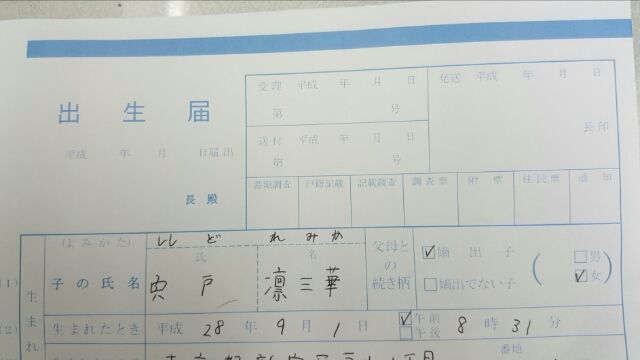 受理 平成 年 月 日
発送 平成 年 月 日
第 号
出生届
送付 平成 年 月 日
長印
平成 年 月 日届出
第 号
長 殿
書類調査 戸籍記載 記載調査 調査票 附票 住民票 通知
(1)
生まれ
(よみかた) ししど れみか
氏 名
子の氏名 宍戸 凛三華
父母との続き柄
☑嫡出子
□嫡出でない子
□男
☑女
(2)
生まれたとき 平成 28 年 9 月 1 日 ☑午前 □午後 8 時 31 分
番地